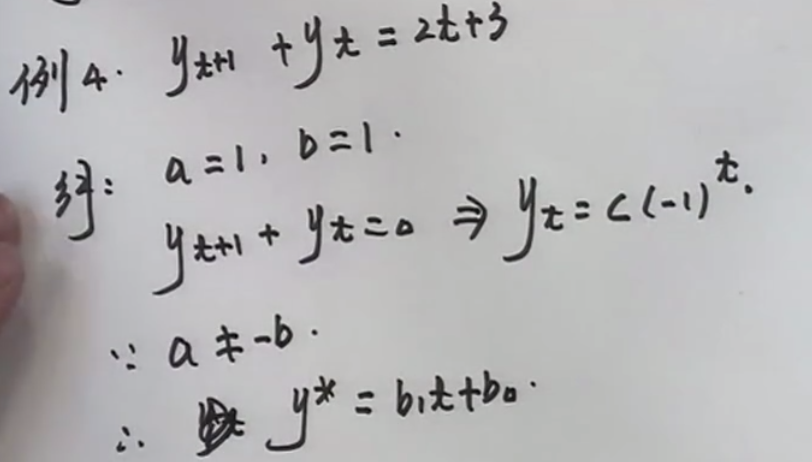 例4. y_{t+1} + y_t = 2t+3
解: a=1, b=1.
y_{t+1} + y_t = 0 ⇒ y_t = C(-1)^t.
∵ a ≠ -b.
∴ y* = b₁t+b₀.